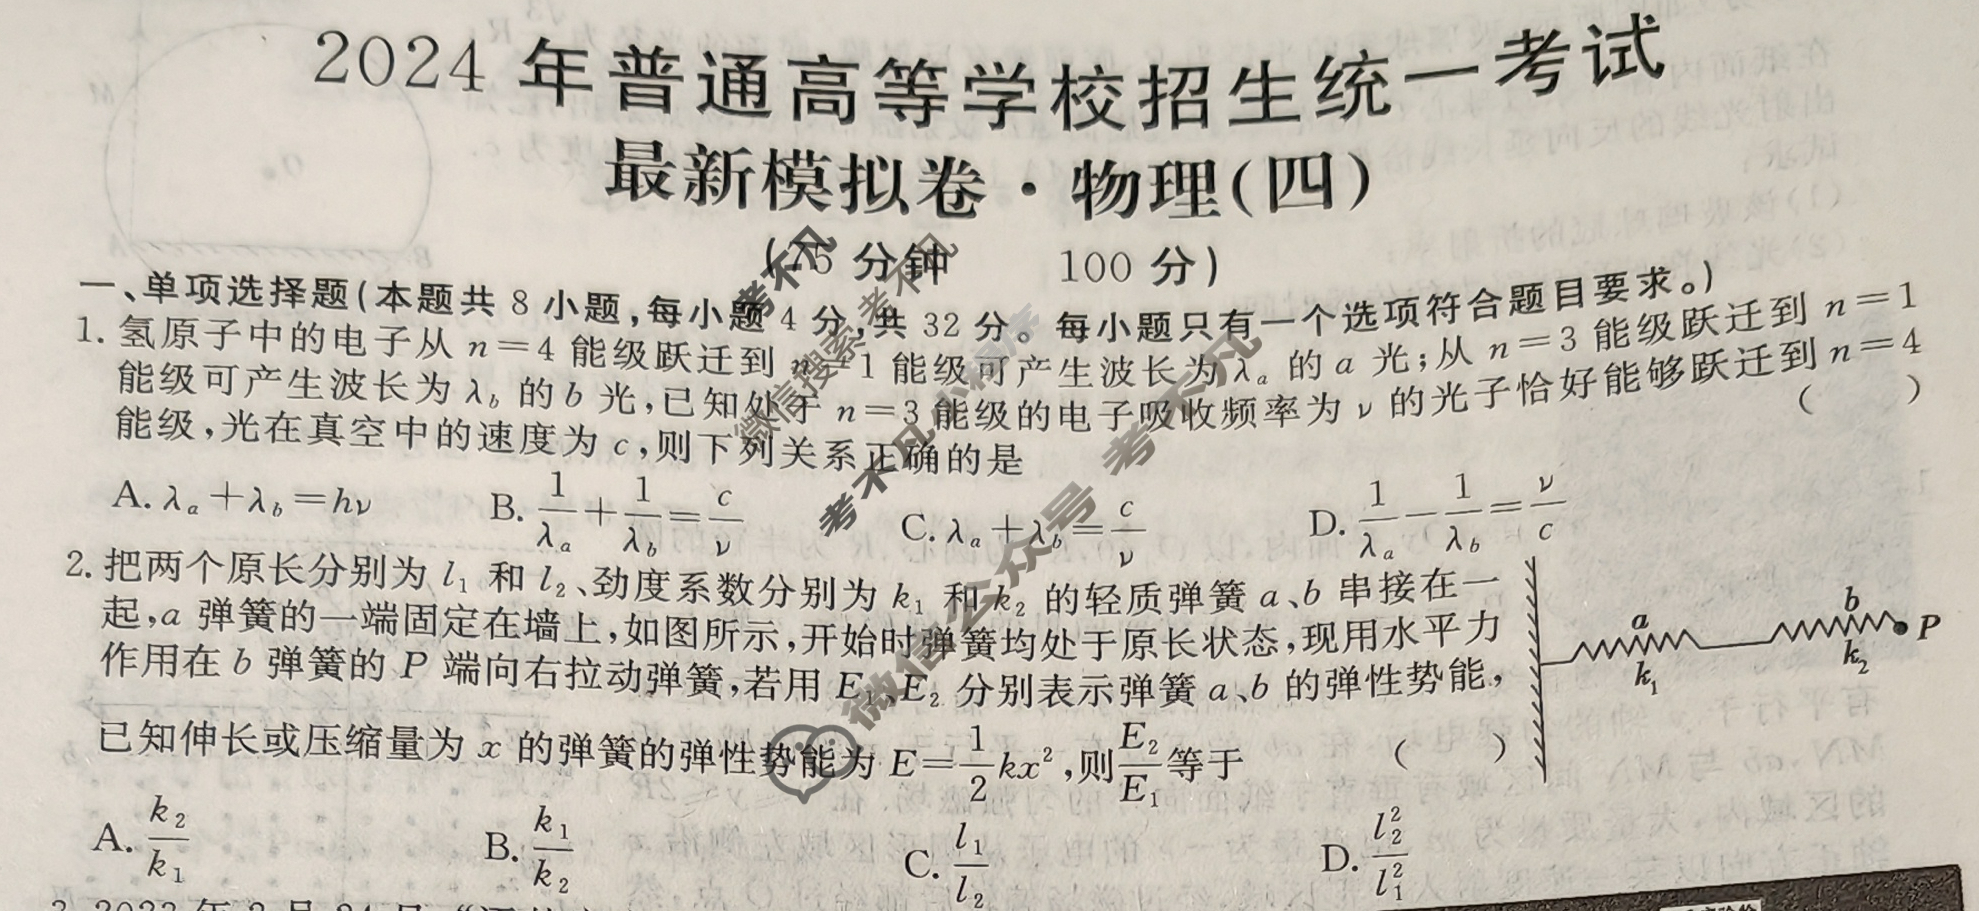 2024年普通高等学校招生统一考试
最新模拟卷·物理(四)
(75分钟 100分)
一、单项选择题(本题共8小题,每小题4分,共32分。每小题只有一个选项符合题目要求。)
1. 氢原子中的电子从 n=4 能级跃迁到 n=1 能级可产生波长为 λa 的 a 光;从 n=3 能级跃迁到 n=1
能级可产生波长为 λb 的 b 光,已知处于 n=3 能级的电子吸收频率为 ν 的光子恰好能够跃迁到 n=4
能级,光在真空中的速度为 c,则下列关系正确的是 ( )
A. λa+λb=hν B. 1/λa+1/λb=c/ν C. λa+λb=c/ν D. 1/λa-1/λb=ν/c
2. 把两个原长分别为 l1 和 l2、劲度系数分别为 k1 和 k2 的轻质弹簧 a、b 串接在一
起,a 弹簧的一端固定在墙上,如图所示,开始时弹簧均处于原长状态,现用水平力
作用在 b 弹簧的 P 端向右拉动弹簧,若用 E1、E2 分别表示弹簧 a、b 的弹性势能,
已知伸长或压缩量为 x 的弹簧的弹性势能为 E=1/2kx²,则E2/E1等于 ( )
A. k2/k1 B. k1/k2 C. l1/l2 D. l2²/l1²
a
k1
b
k2
P
考不凡
微信搜索考不凡
考不凡
微信公众号 考不凡